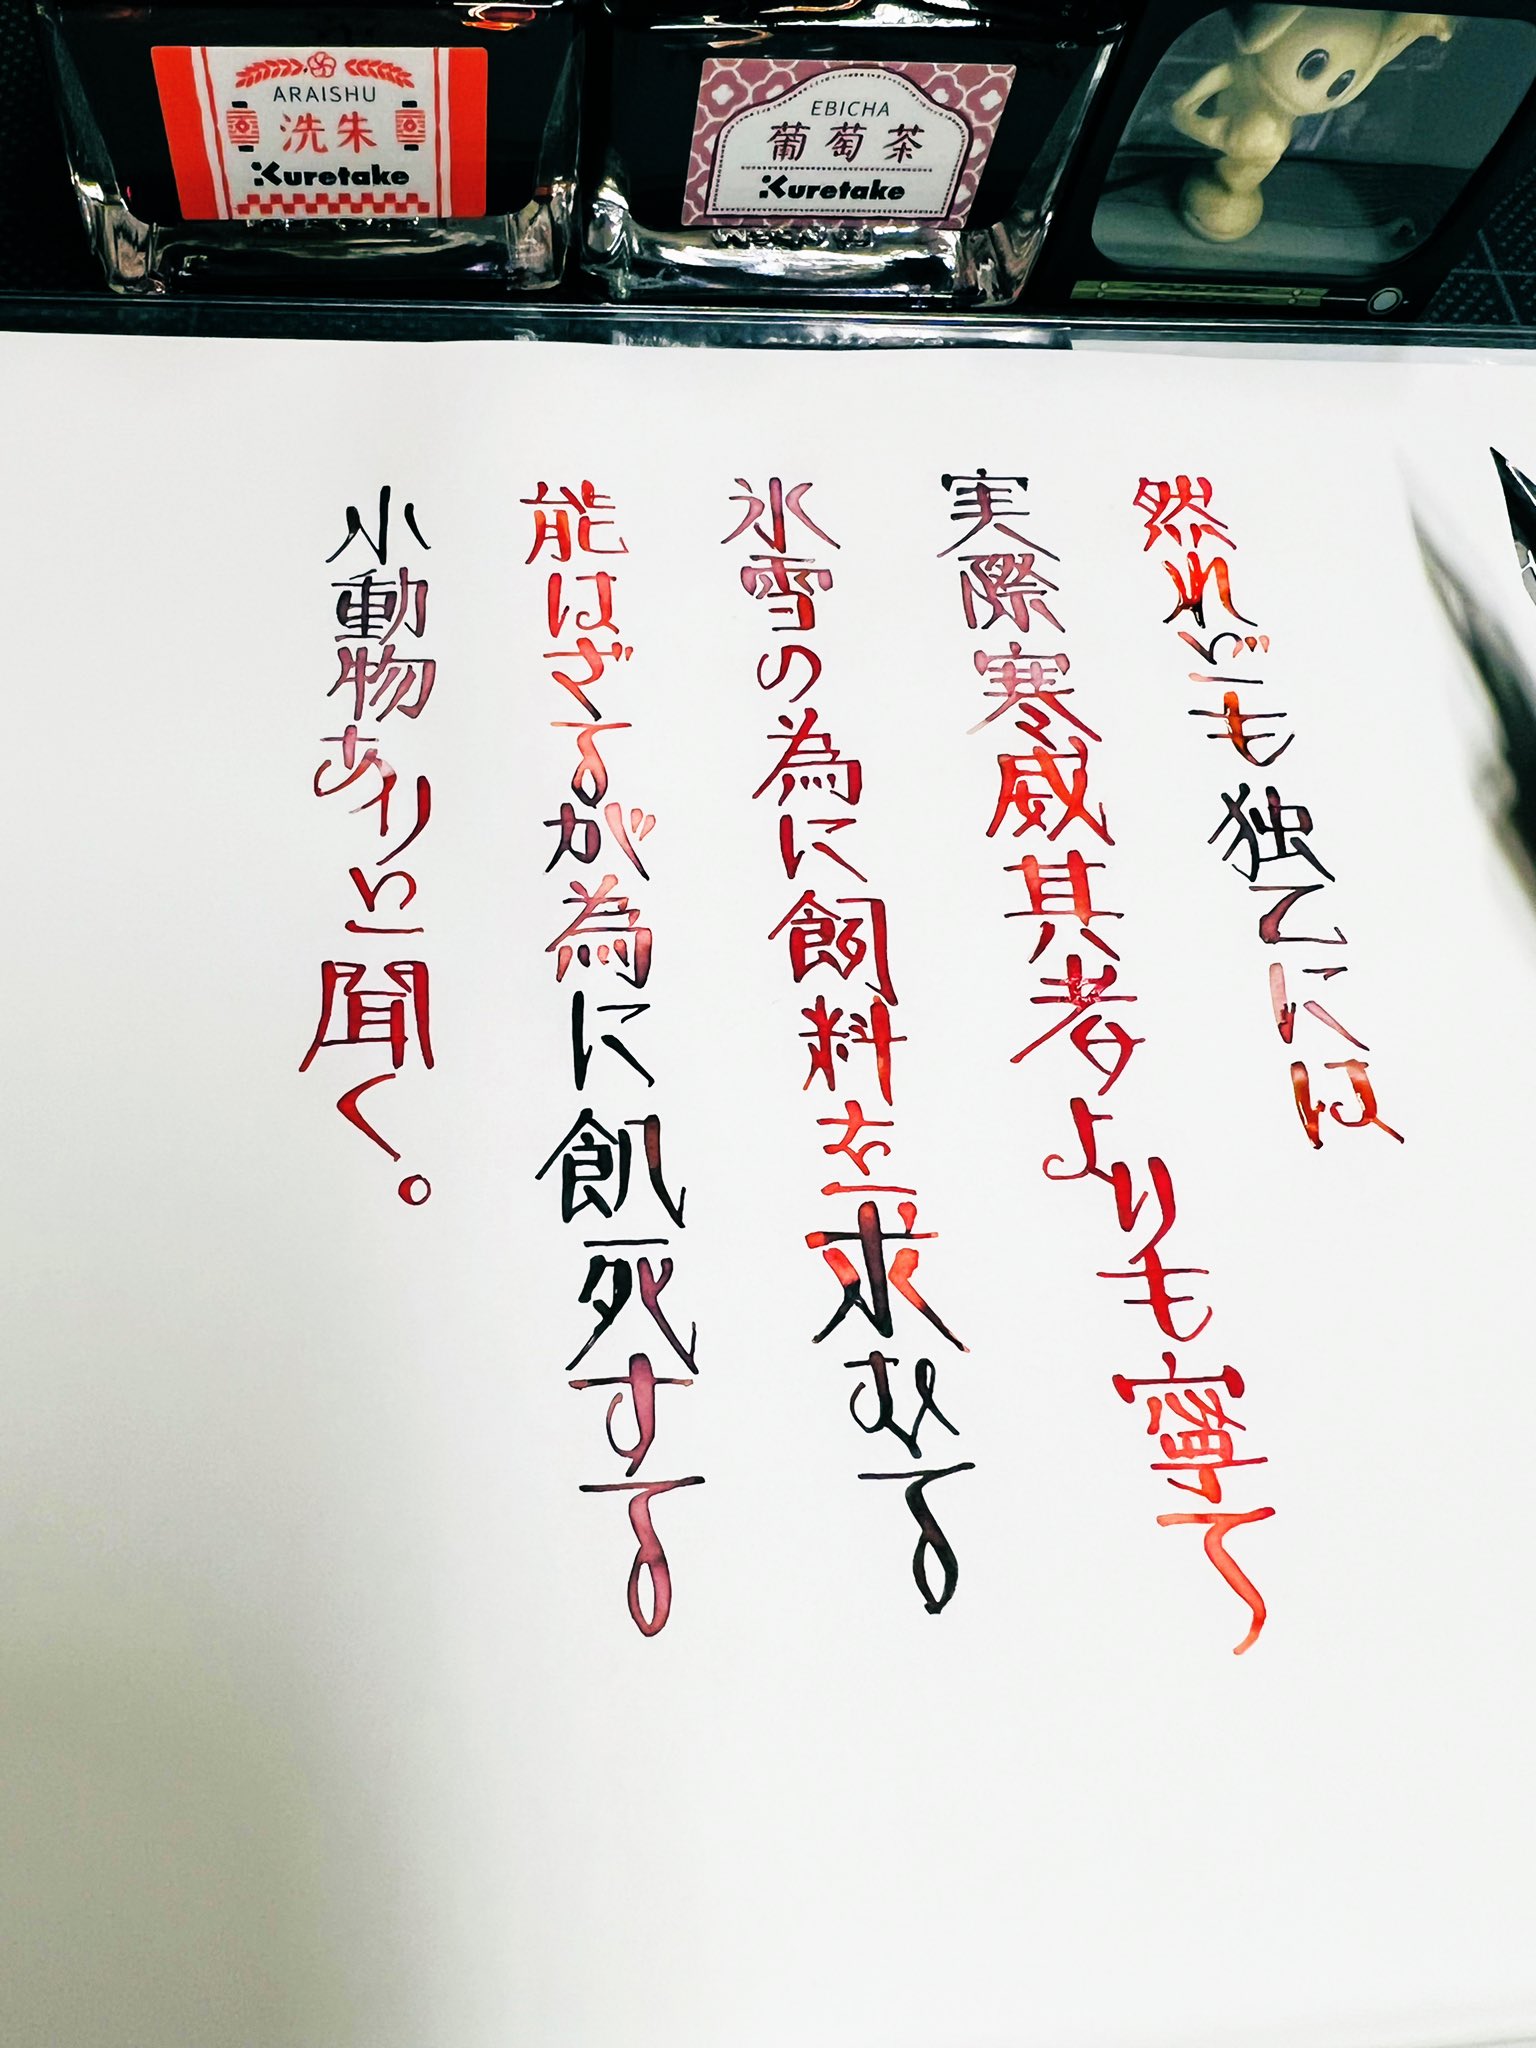 ARAISHU
洗朱
Kuretake
EBICHA
葡萄茶
Kuretake
然れども独乙には
実際寒威其者よりも寧ろ
氷雪の為に飼料を求むる
能はざるが為に飢死する
小動物ありと聞く。